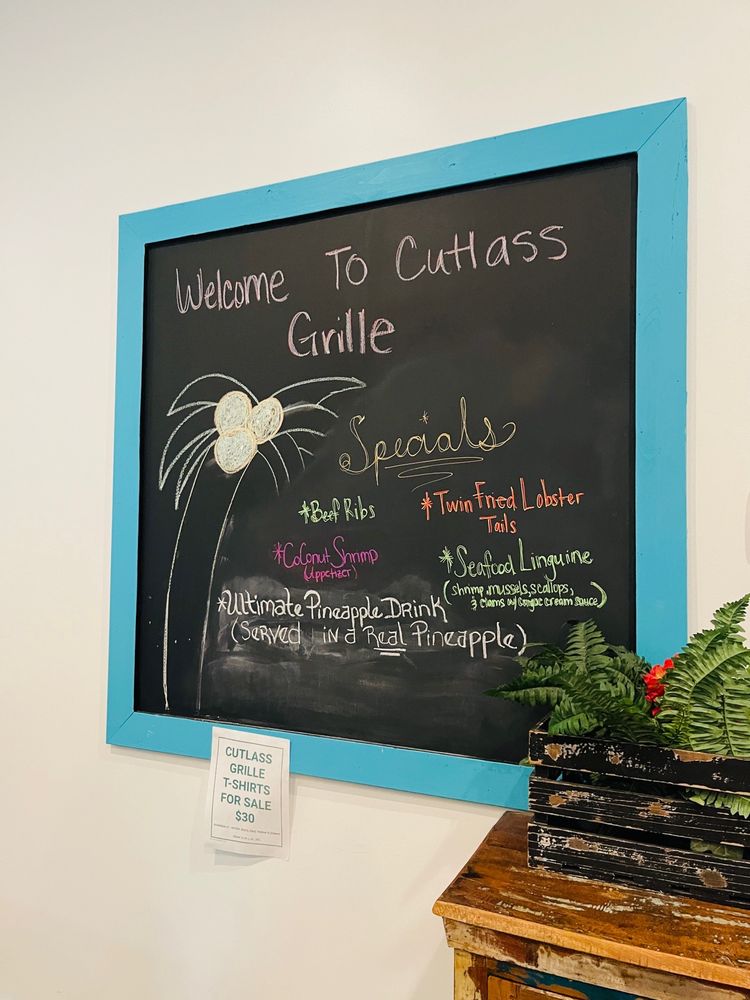 Welcome To Cutlass
Grille
Specials
*Beef Ribs
*Twin Fried Lobster
Tails
*Coconut Shrimp
(Appetizer)
*Seafood Linguine
(shrimp, mussels, scallops,
& clams w/ cognac cream sauce)
*Ultimate Pineapple Drink
(Served in a Real Pineapple)
CUTLASS
GRILLE
T-SHIRTS
FOR SALE
$30